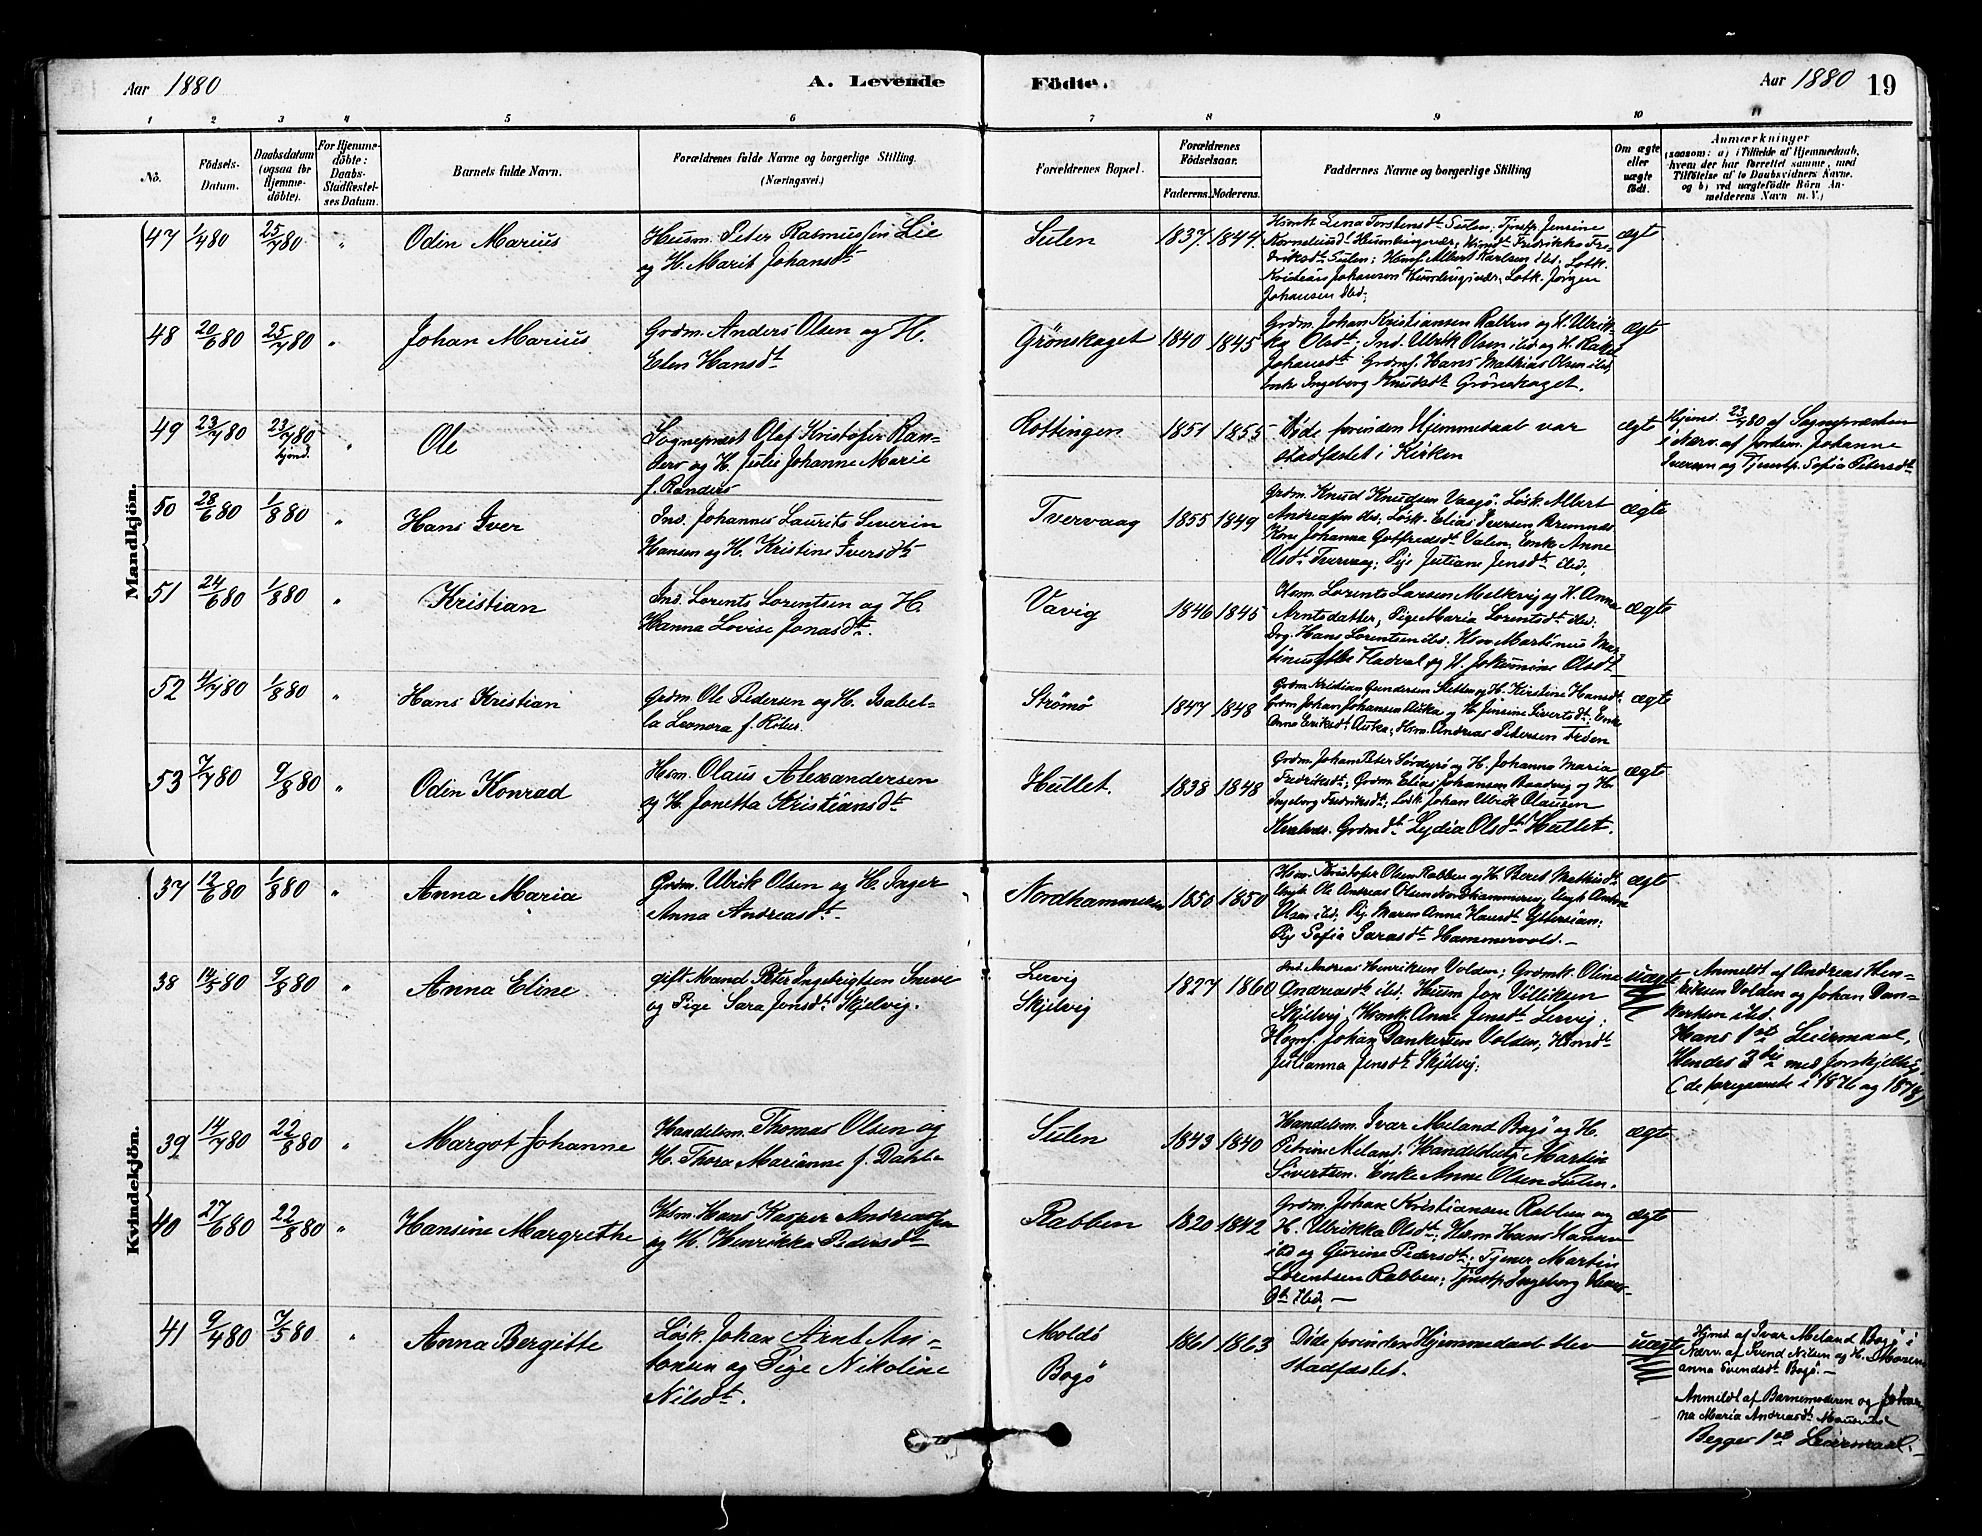 Aar 1880
A. Levende
Födte.
Aar 1880
19
1 2 3 4 5 6 7 8 9 10 11
No.
Födsels-
Datum.
Daabsdatum
(ogsaa for
Hjemme-
döbte).
For Hjemme-
döbte:
Daabs-
Stadfæstel-
ses Datum.
Barnets fulde Navn.
Forældrenes fulde Navne og borgerlige Stilling.
(Næringsvei.)
Forældrenes Bopæl.
Forældrenes
Födselsaar.
Faderens. Moderens.
Faddernes Navne og borgerlige Stilling
Om ægte
eller
uægte
födt.
Anmærkninger
(saasom: a) i Tilfælde af Hjemmedaab,
hvem der har forrettet samme, med
Tilföielse af to Daabsvidners Navne.
og b) ved uægtefödte Börn An-
melderens Navn m. V.)
Mandkjön.
47 1/4 80 25/7 80 " Odin Marius
Husm. Peter Rasmussen Lie
og H. Marit Johansdt
Sulen 1837 1844
Kristian Johansen
Johansen ibd;
ægt
48 20/6 80 25/7 80 " Johan Marius
Grdm. Anders Olsen og H.
Elen Hansdt
Grönskaget 1840 1845
Grdm. Johan Kristiansen Rabben og H. Ulrik-
ka Olsdt; Ind. Ulrik Olsen ibd og H. Rakel
Johansdt Grdmf. Hans Mathias Olsen ibd,
Enke Ingeborg Knudsdt Grönskaget.
ægt
49 23/7 80 23/7 80 hjemd. " Ole
Sognepræst Olaf Kristofer Ran-
ders og H. Julie Johanne Marie
f. Randers
1851 1855
Döde forinden Hjemmedaab var
stadfæstet i Kirken
ægt
Hjemd. 23/7 80 af Sognepræsten
i Nærv. af Jordem. Johanne
Iversen og Tjenstp. Sofia Petersdt
50 28/6 80 1/8 80 " Hans Iver
Ind. Johannes Laurits Severin
Hansen og H. Kristine Iversdt
Tvervaag 1855 1849
Grdm. Knud Knudsen Vaagö. Lösk. Albert
Andreassen ibd; Lösk. Elias Iversen
Kone Johanna Gotfredsdt Valen, Enke Anne
Olsdt Tvervaag; Pige Juliane Jensdt ibd;
ægte
51 24/6 80 1/8 80 " Kristian
Ind. Lorents Lorentsen og H
Hanna Lovise Jonasdt.
Vavig 1846 1845
Lorents Larsen Melkvig og H. Anna
Arntsdatter, Pige Maria Lorentsdt ibd;
Hans Lorentsen ibd. Hsm Martinus Mar-
og H. Jokumine Olsdt
ægte
52 4/7 80 1/8 80 " Hans Kristian
Grdm Ole Pedersen og H. Isabel-
la Leonora f.
Strömö 1847 1848
Grdm Kristian Gundersen og H. Kirstine Hansdt.
Grdm Johan Johansen Auka og H. Jensine Sivertsdt; Enke
Anna Eriksdt Auka; Hsm. Andreas Petersen
ægte
53 7/7 80 9/8 80 " Odin Konrad
Hsm. Olaus Alexandersen
og H. Jonetta Kristiansdt
Hullet. 1838 1848
Grdm Johan Peter og H. Johanna Maria
Fredriksdt; Grdm. Elias Johansen og H.
Ingeborg Fredriksdt; Lösk. Johan Ulrik Olausen
Grdmdt Lydia Olsdt Hullet.
ægte
Kvindekjön.
37 12/6 80 1/8 80 " Anna Maria
Grdm. Ulrik Olsen og H. Inger
Anna Andreasdt.
Nordhammeren 1850 1850
Hsm. Kristofer Olsen Rabben og H. Beret Mathisdt
Ungk Ole Andreas Olsen Nordhammeren; Ungk Anton
Olsen ibd; Pig. Maren Anna Hansdt
Pig Sofia Hammervold. –
ægt
38 14/5 80 9/8 80 " Anna Eline.
gift Mand Peter Ingebrigtsen
og Pige Sara Jonsdt Skjelvig.
Lervig
Skjelvig
1827 1860
Ind. Andreas Henriksen Volden; Grdmk. Oline
Andreasdt ibd. Husm Jon Villiksen
Skjelvig, Hsmk. Anne Jensdt Lervig;
Johan Dankersen Volden; Hsmdt
Julianna Jensdt Skjelvig;
uægte
Anmeldt af Andreas Hen-
riksen Volden og Johan Dan-
kersen ibd.
Hans 1ste Leiermaal,
Hendes 3die med forskjellig,
(de foregaaende i 1876 og 1878)
39 14/7 80 22/8 80 " Margot Johanne
Handelsm. Thomas Olsen og
H. Thora Marianne f. Dahl.
Sulen 1843 1840
Handelsm. Ivar Meland Bogö og H.
Petrine Meland; Martin
Sivertsen. Enke Anne Olsen Sulen.
ægte
40 27/6 80 22/8 80 " Hansine Margrethe
Hsm. Hans Kasper Andreassen
og H. Henrikka Pedersdt
Rabben 1820 1842
Grdm. Johan Kristiansen Rabben og
H. Ulrikka Olsdt; Hsm Hans Hansen
ibd og Gurine Pedersdt; Tjener Martin
Lorentsen Rabben; Tjnstp. Ingeborg Hans-
dt ibd; –
ægte
41 9/4 80 7/5 80 " Anna Bergitte
Lösk. Johan Arnt An-
tonsen og Pige Nikoline
Nilsdt.
Moldö
Bogö
1861 1863
Döde forinden Hjemmedaab blev
stadfæstet.
uægte
Hjmd. af Ivar Meland Bogö i
Nærv. af Svend Nilsen og H. Maren-
anna Svendsdt Bogö. –
Anmeldt af Barnemoderen og Johan-
na Maria Andreasdt Mausund
Begges 1ste Leiermaal. –